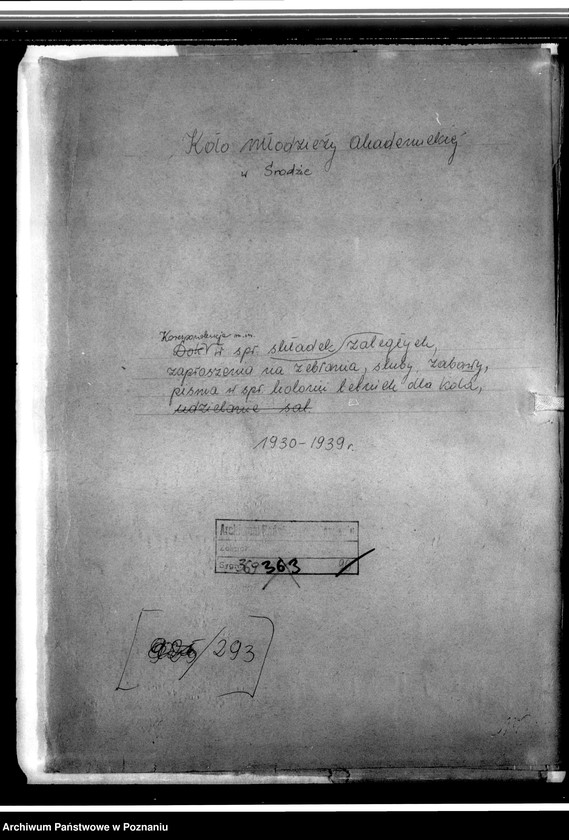 Koło Młodzieży Akademickiej
w Środzie
Korespondencja m.in.
Dok. w spr. składek zaległych,
zaproszenia na zebrania, śluby, zabawy,
pisma w spr. kolonii letnich dla koła,
udzielanie sal
1930-1939 r.
369 363
/293
Archiwum Państwowe w Poznaniu